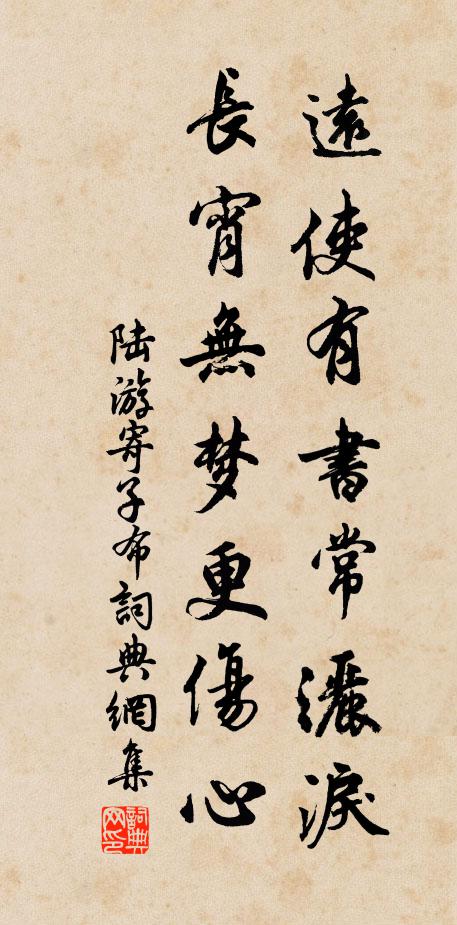 遠使有書常灑淚
長宵無梦更傷心
陸游寄子布詞典網集
詞典网印